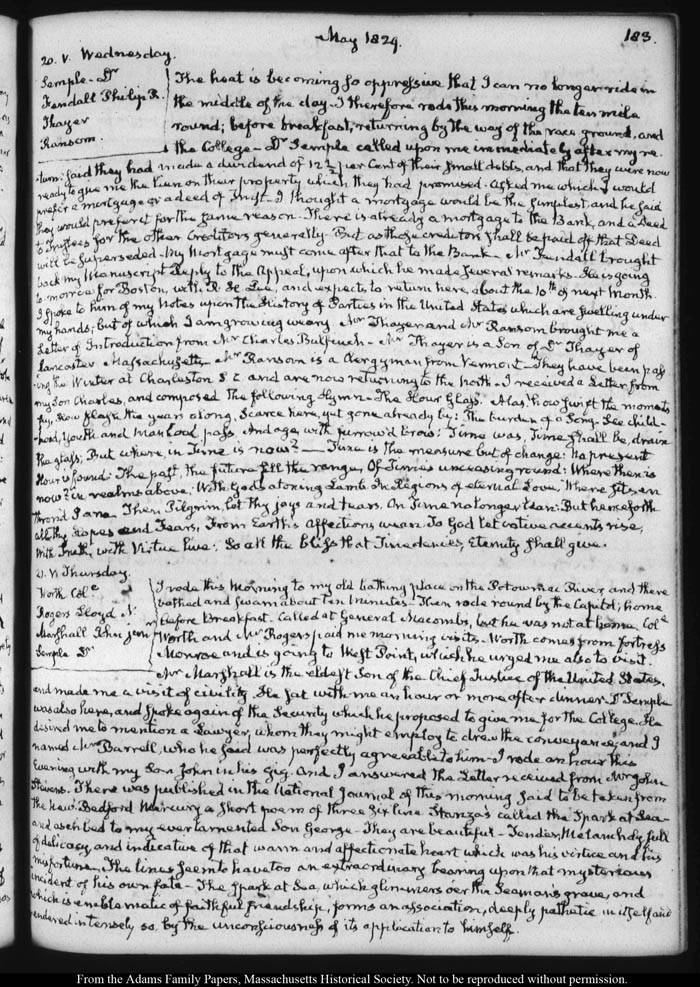 May 1829.
183.
20. V. Wednesday.
Semple – Dr
Fendall Philip R.
Thayer
Ransom
The heat is becoming so oppressive that I can no longer ride in
the middle of the day – I therefore rode this morning the ten mile
round; before breakfast, returning by the way of the race ground, and
the College – Dr Semple called upon me immediately after my re-
turn: said they had made a dividend of 12½ per Cent of their small debts, and that they were now
ready to give me the lien on their property which they had promised. Asked me which I would
prefer a mortgage or a deed of trust – I thought a mortgage would be the simplest, and he said
they would prefer it for the same reason – There is already a mortgage to the Bank, and a Deed
to Trustees for the other Creditors generally – But as those creditors shall be paid off that Deed
will be superseded – My Mortgage must come after that to the Bank – Mr Fendall brought
back my Manuscript Reply to the Appeal, upon which he made several remarks – He is going
to-morrow for Boston, with R. H. Lee, and expects to return here, about the 10th of next Month.
I spoke to him of my Notes upon the History of Parties in the United States which are swelling under
my hands; but of which I am growing weary. Mr Thayer and Mr Ransom brought me a
Letter of Introduction from Mr Charles Bulfinch – Mr Thayer is a Son of Dr Thayer of
Lancaster Massachusetts – Mr Ransom is a Clergyman from Vermont – They have been pass-
ing the Winter at Charleston S. C. and are now returning to the North – I received a Letter from
my Son Charles, and composed the following Hymn – The Hour Glass. Alas! how swift the moments
fly, How flash the years along, Scarce here, yet gone already by: The burden of a Song – See child-
hood, youth and manhood pass And age with furrow'd brow: Time was, Time shall be, drain
the glass; But where, in Time is now? – Time is the measure but of change: No present
Hour is found: The past, the future fill the range, Of Time's unceasing round: Where then is
now? in realms above; With God's atoning Lamb In Regions of eternal Love, Where sits en-
thron'd I am – Then Pilgrim, let thy joys and tears, On Time no longer lean: But henceforth
all thy hopes and Fears, From Earth's affections wean: To God let votive accents rise,
With Truth, with Virtue live: So all the bliss that Time denies, Eternity shall give.
21. V. Thursday.
Worth Col.e
Rogers Lloyd N.
Marshall John jun.r
Semple Dr
I rode this Morning to my old bathing place on the Potowmac River, and there
bathed and swam about ten minutes – Then rode round by the Capitol; home
before breakfast. Called at General Macomb's, but he was not at home. Col.e
Worth and Mr Rogers paid me morning visits – Worth comes from Fortress
Monroe and is going to West Point, which he urged me also to visit.
Mr Marshall is the eldest Son of the Chief Justice of the United States,
and made me a visit of civility. He sat with me an hour or more after dinner. Dr Semple
was also here, and spoke again of the Security which he proposed to give me for the College. He
desired me to mention a Lawyer, whom they might employ to draw the conveyance, and I
named Mr Barrell, who he said was perfectly agreeable to him – I rode an hour this
Evening with my Son John in his gig. And I answered the Letter received from Mr John
Stevens. There was published in the National Journal of this morning said to be taken from
the New-Bedford Mercury a short poem of three six line Stanza's called the Spark at Sea –
and ascribed to my ever lamented Son George – They are beautiful – Tender, Melancholy, full
of delicacy, and indicative of that warm and affectionate heart which was his virtue and his
misfortune – The lines seem to have too an extraordinary bearing upon that mysterious
incident of his own fate – The Spark at Sea, which glimmers o'er the Seaman's grave, and
which is emblematic of faithful friendship, forms an association, deeply pathetic in itself and
rendered intensely so, by the unconsciousness of its application to himself.
From the Adams Family Papers, Massachusetts Historical Society. Not to be reproduced without permission.